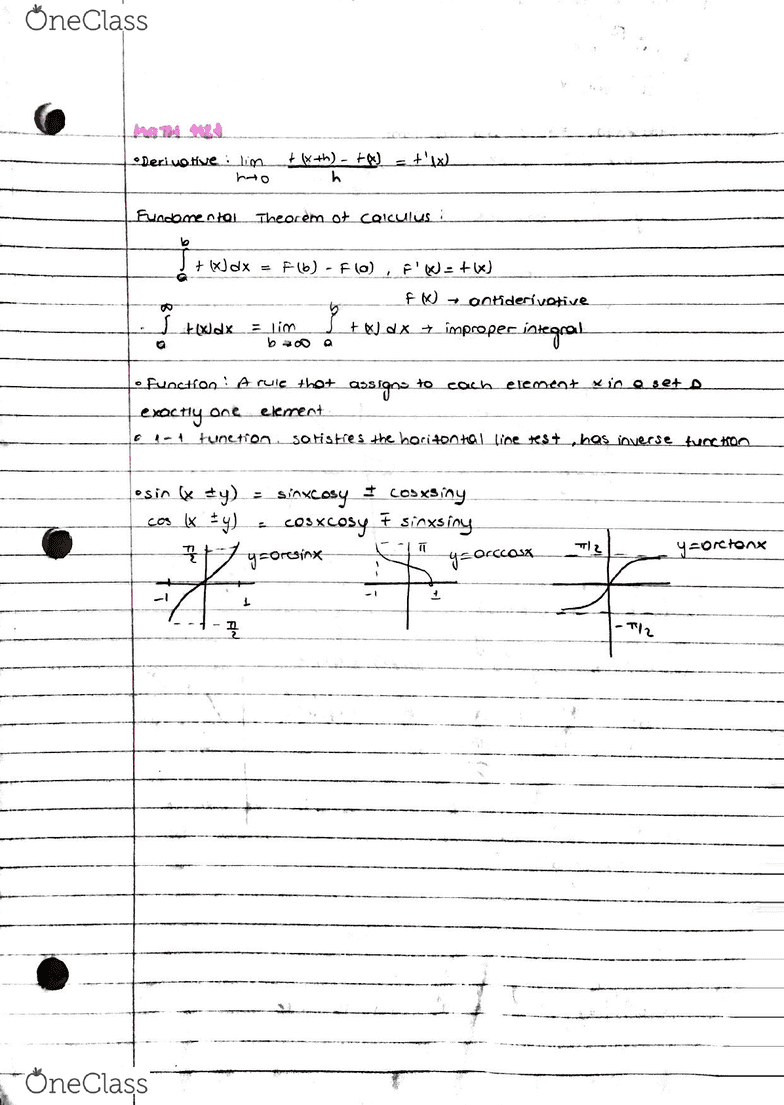 OneClass
MATH
• Derivative: lim h→0 f(x+h) - f(x) / h = f'(x)
Fundamental Theorem of Calculus:
∫ₐᵇ f(x)dx = F(b) - F(a), F'(x) = f(x)
F(x) → antiderivative
· ∫ₐ^∞ f(x)dx = lim b→∞ ∫ₐᵇ f(x)dx → improper integral
• Function: A rule that assigns to each element x in a set D
exactly one element
• 1-1 function. satisfies the horitontal line test, has inverse function
• sin (x ± y) = sinxcosy ± cosxsiny
cos (x ± y) = cosxcosy ∓ sinxsiny
π/2 y=arcsinx -1 1 -π/2
π y=arccosx -1 1
π/2 y=arctanx -π/2
OneClass